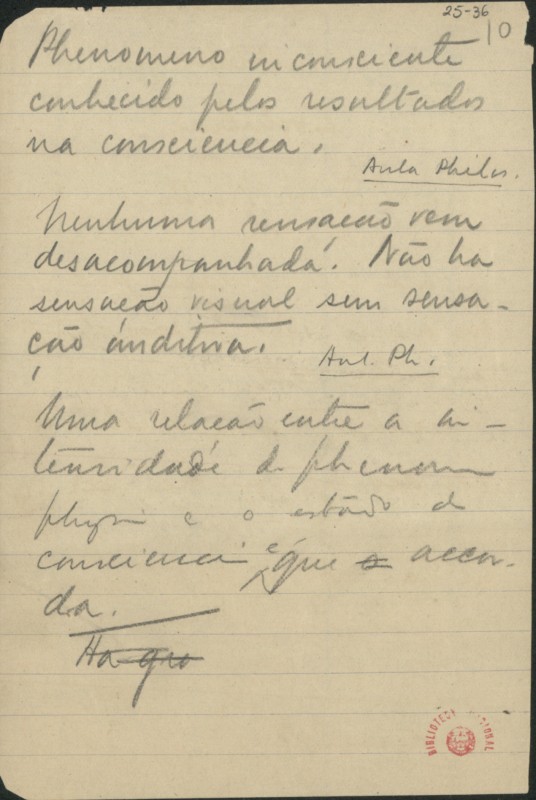 25-36
10
Phenomeno inconsciente
conhecido pelos resultados
na consciencia.
Aula Philos.
Nenhuma sensação vem
desacompanhada. Não ha
sensação visual sem sensa-
ção auditiva.
Aul. Ph.
Uma relação entre a in-
tensidade do phenom
physi e o estado de
conscienci e que a accor-
da.
Ha que
BIBLIOTECA NACIONAL